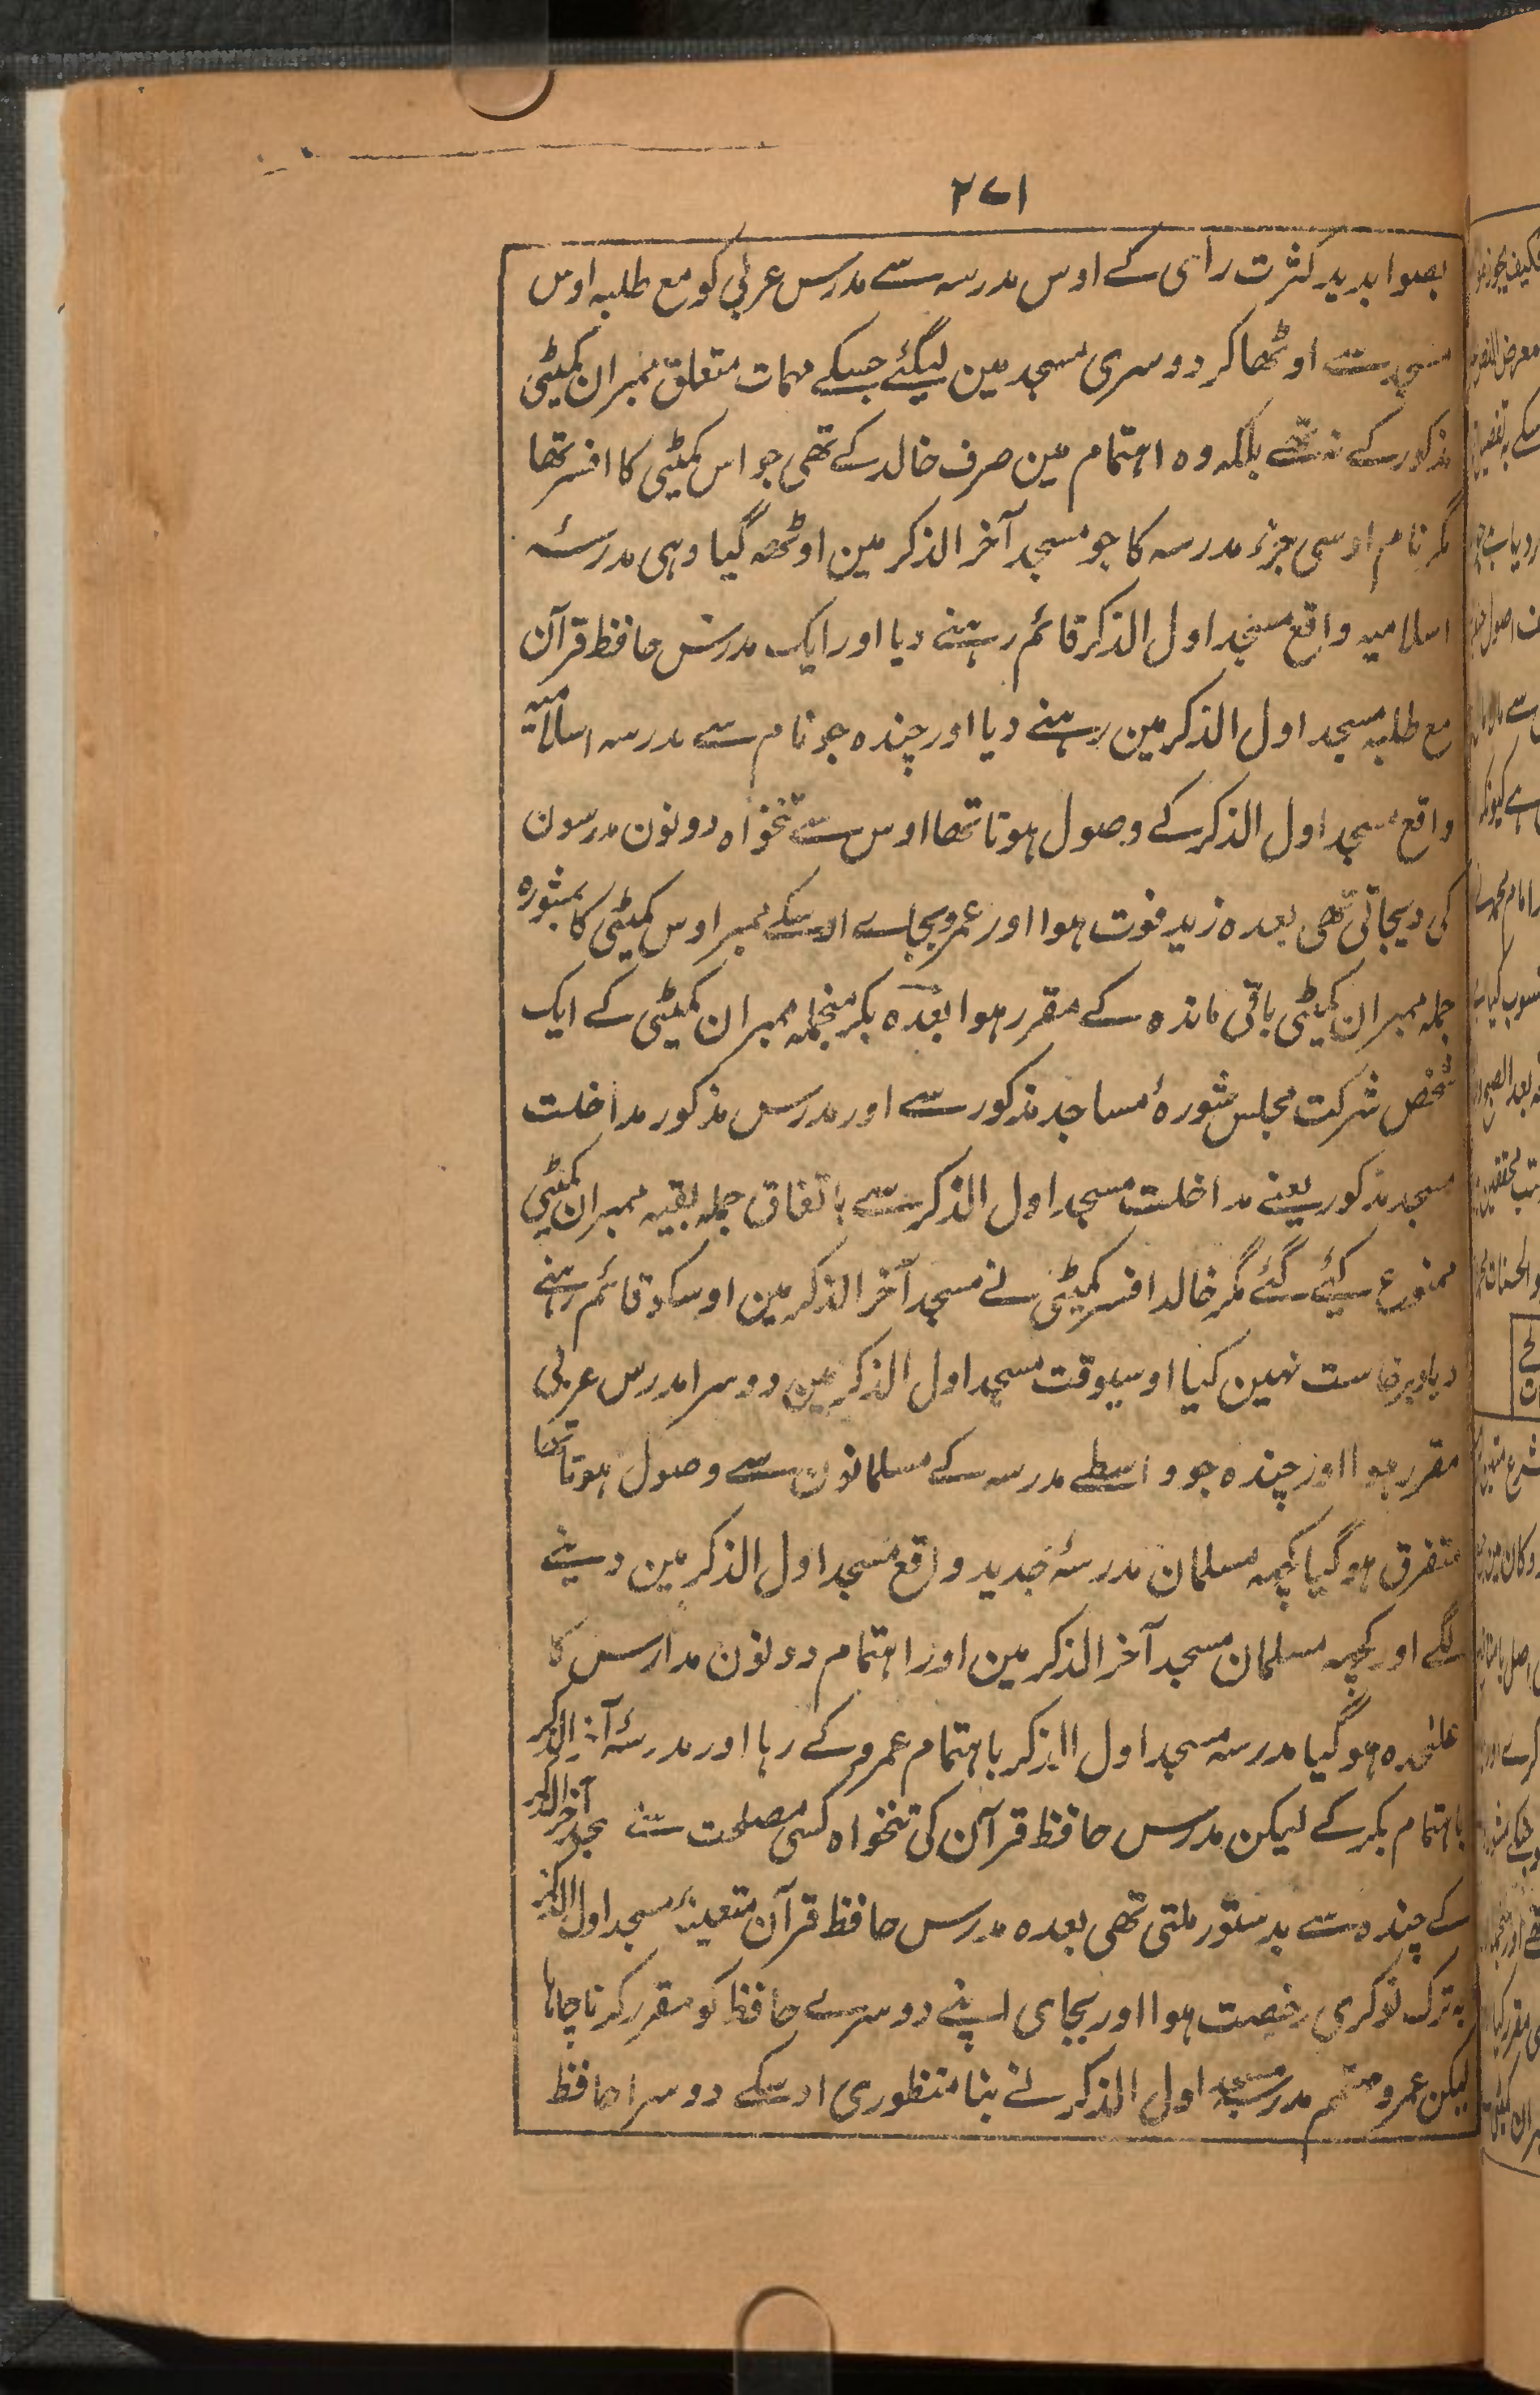 ۲۷۱
بصوابدید کثرت رای کے اوس مدرسہ سے مدرس عربی کو مع طلبہ اوس
مسجد سے اوٹھا کر دوسری مسجد مین لیگئے جسکے مہمات متعلق ممبران کمیٹی
مذکور کے نہ تھے بلکہ وہ اہتمام مین صرف خالد کے تھی جو اس کمیٹی کا افسر تھا
مگر نام اوسی جزء مدرسہ کا جو مسجد آخر الذکر مین اوٹھہ گیا وہی مدرسۂ
اسلامیہ واقع مسجد اول الذکر قائم رہنے دیا اور ایک مدرس حافظ قرآن
مع طلبہ مسجد اول الذکر مین رہنے دیا اور چندہ جو نام سے مدرسہ اسلامیہ
واقع مسجد اول الذکر کے وصول ہوتا تھا اوس سے تنخواہ دونون مدرسون
کی دیجاتی تھی بعدہ زید فوت ہوا اور عمرو بجاے اوسکے ممبر اوس کمیٹی کا بمشورہ
جملہ ممبران کمیٹی باقی ماندہ کے مقرر ہوا بعدہ بکر منجملہ ممبران کمیٹی کے ایک
شخص شرکت مجلس مشورۂ مساجد مذکور سے اور مدرس مذکور مداخلت
مسجد مذکور یعنے مداخلت مسجد اول الذکر سے باتفاق جملہ بقیہ ممبران کمیٹی
ممنوع کیئے گئے مگر خالد افسر کمیٹی نے مسجد آخر الذکر مین اوسکو قائم رہنے
دیا وبرخاست نہین کیا اوسیوقت مسجد اول الذکر مین دوسرا مدرس عربی
مقرر ہوا اور چندہ جو واسطے مدرسہ کے مسلمانون سے وصول ہوتا تھا
متفرق ہو گیا کچہہ مسلمان مدرسۂ جدید واقع مسجد اول الذکر مین دینے
لگے اور کچہہ مسلمان مسجد آخر الذکر مین اور اہتمام دونون مدارس کا
علٰحدہ ہو گیا مدرسہ مسجد اول الذکر باہتمام عمرو کے رہا اور مدرسۂ آخر الذکر
باہتمام بکر کے لیکن مدرس حافظ قرآن کی تنخواہ کسی مصلحت سے مسجد آخر الذکر
کے چندہ سے بدستور ملتی تھی بعدہ مدرس حافظ قرآن متعینہ مسجد اول الذکر
بہ ترک نوکری رخصت ہوا اور بجای اپنے دوسرے حافظ کو مقرر کرنا چاہا
لیکن عمرو مہتمم مدرسہ مسجد اول الذکر نے بنا منظوری اوسکے دوسرا حافظ